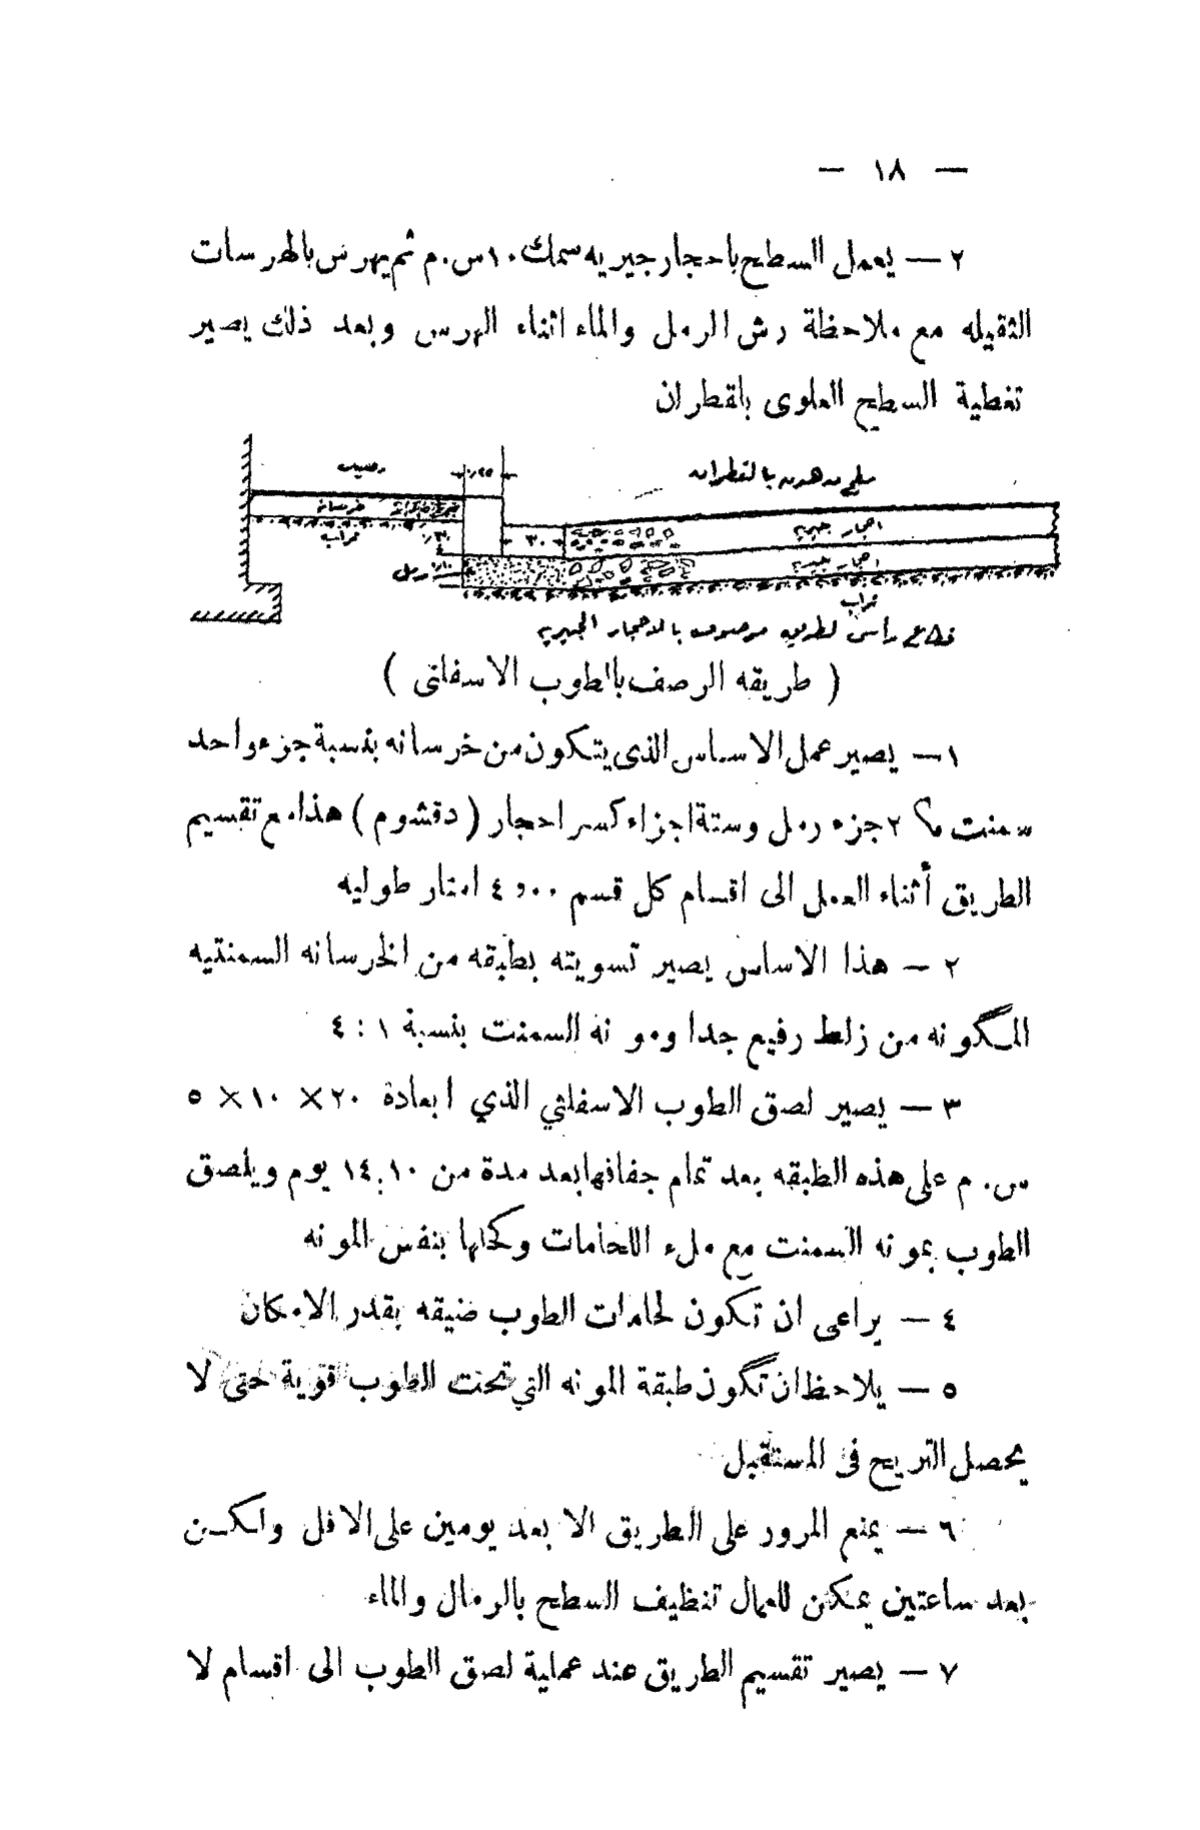 — ١٨ —
٢ — يعمل السطح باحجار جيريه سمك ١٠ س.م ثم يهرس بالهرسات
الثقيله مع ملاحظة رش الرمل والماء اثناء الهرس وبعد ذلك يصير
تغطية السطح العلوى بالقطران
سطح مدهون بالقطران
رصيف
٢٥ر
خرسانة
احجار جيريه
٣٠
تراب
احجار جيريه
رمل
تراب
قطاع رأسى لطريق مرصوف بالاحجار الجيريه
( طريقه الرصف بالطوب الاسفلتى )
١ — يصير عمل الاساس الذى يتكون من خرسانه بنسبة جزء واحد
سمنت و ٢ جزء رمل وستة اجزاء كسر احجار ( دقشوم ) هذا مع تقسيم
الطريق أثناء العمل الى اقسام كل قسم ٤,٠٠ امتار طوليه
٢ — هذا الاساس يصير تسويته بطبقه من الخرسانه السمنتيه
المكونه من زلط رفيع جدا ومونه السمنت بنسبة ١ : ٤
٣ — يصير لصق الطوب الاسفلتي الذي ابعادة ٢٠ × ١٠ × ٥
س. م على هذه الطبقه بعد تمام جفافها بعد مدة من ١٠ : ١٤ يوم ويلصق
الطوب بمونه السمنت مع ملء اللحامات وكحلها بنفس المونه
٤ — يراعى ان تكون لحامات الطوب ضيقه بقدر الامكان
٥ — يلاحظ ان تكون طبقة المونه التي تحت الطوب قوية حتى لا
يحصل التريح فى المستقبل
٦ — يمنع المرور على الطريق الا بعد يومين على الاقل ولكن
بعد ساعتين يمكن للعمال تنظيف السطح بالرمال والماء
٧ — يصير تقسيم الطريق عند عملية لصق الطوب الى اقسام لا